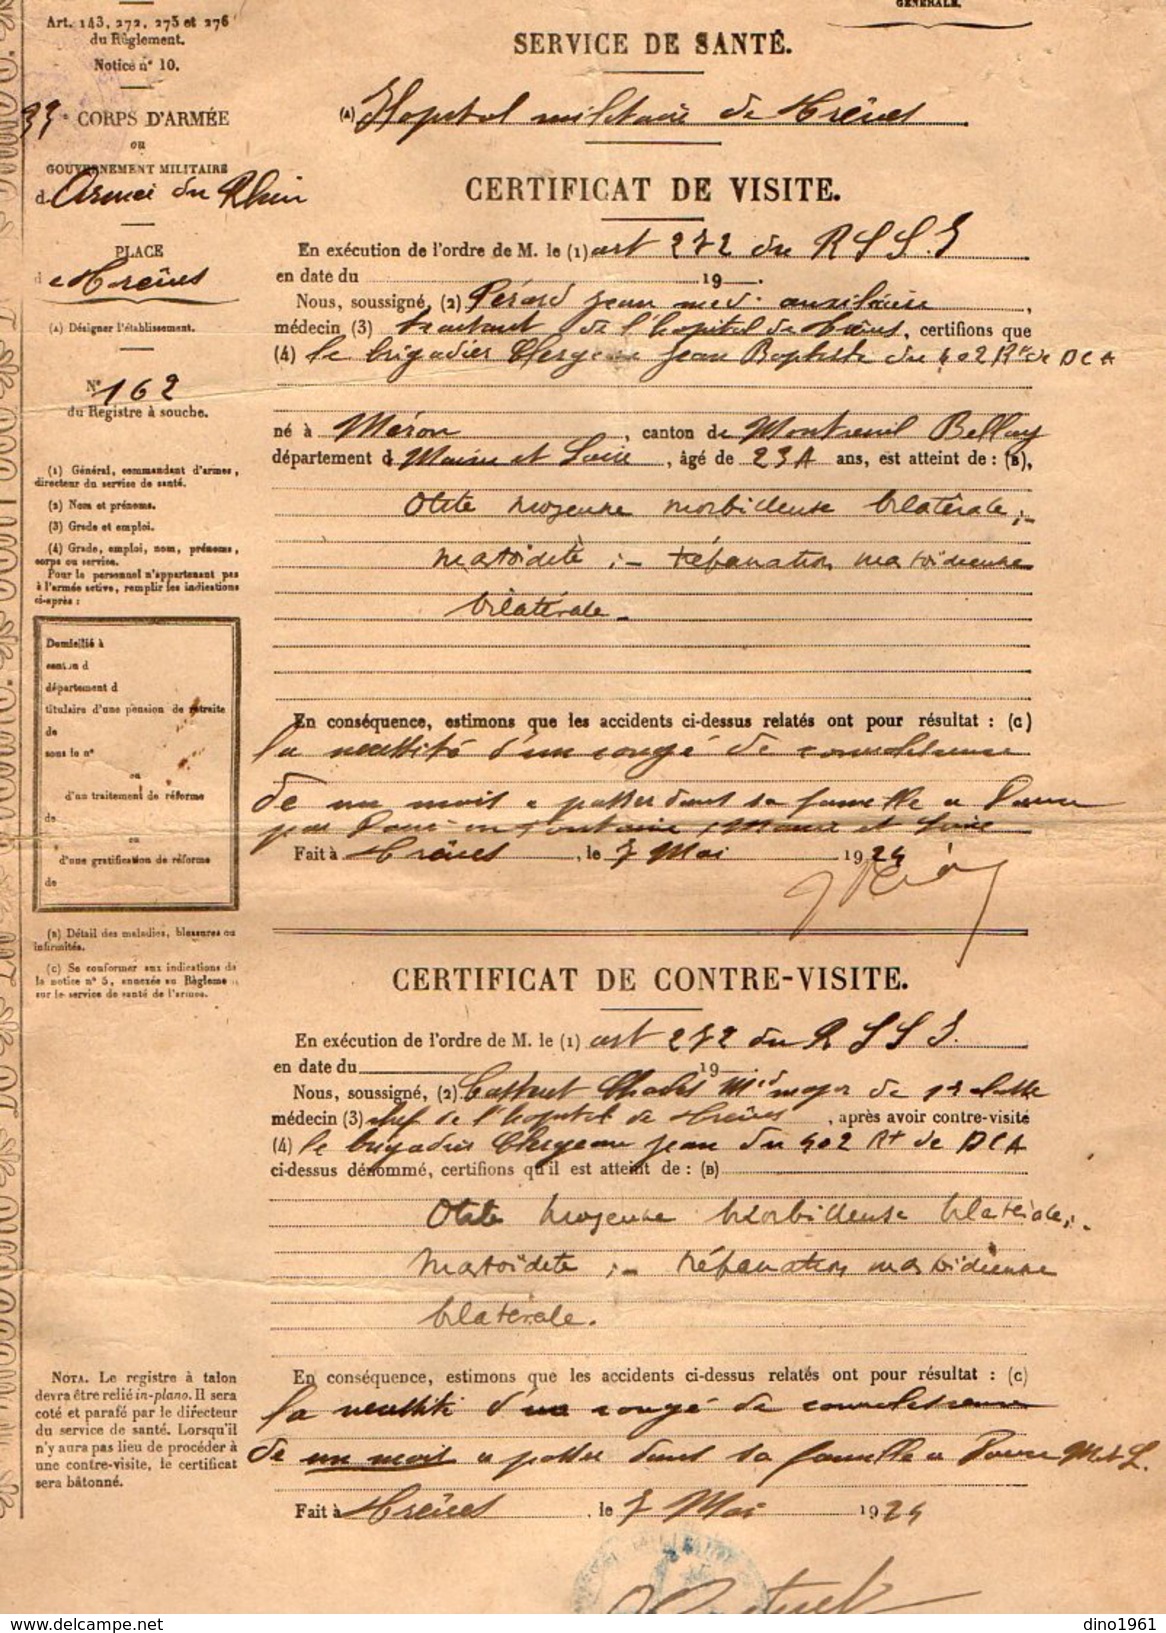 GÉNÉRALE.
Art. 143, 272, 275 et 276
du Règlement.
Notice n° 10.
33e CORPS D'ARMÉE
ou
GOUVERNEMENT MILITAIRE
d Armée du Rhin
PLACE
de Trèves
(A) Désigner l'établissement.
N° 162
du Registre à souche.
(1) Général, commandant d'armes,
directeur du service de santé.
(2) Nom et prénoms.
(3) Grade et emploi.
(4) Grade, emploi, nom, prénoms,
corps ou service.
Pour le personnel n'appartenant pas
à l'armée active, remplir les indications
ci-après :
Domicilié à
canton d
département d
titulaire d'une pension de retraite
de
sous le n°
ou
d'un traitement de réforme
de
ou
d'une gratification de réforme
de
(B) Détail des maladies, blessures ou
infirmités.
(C) Se conformer aux indications de
la notice n° 5, annexée au Règleme
sur le service de santé de l'armée.
NOTA. Le registre à talon
devra être relié in-plano. Il sera
coté et parafé par le directeur
du service de santé. Lorsqu'il
n'y aura pas lieu de procéder à
une contre-visite, le certificat
sera bâtonné.
SERVICE DE SANTÉ.
(A) Hopital militaire de Trèves
CERTIFICAT DE VISITE.
En exécution de l'ordre de M. le (1) art 272 du RSSI
en date du 19 .
Nous, soussigné, (2) Pérard Jean med. auxiliaire,
médecin (3) traitant de l'hopital de Trèves, certifions que
(4) le brigadier Clergeau Jean Baptiste du 402 Rt de DCA
né à Méron, canton de Montreuil Bellay
département d Maine et Loire, âgé de 23A ans, est atteint de : (B),
Otite moyenne morbilleuse bilatérale ;-
Mastoïdite ;- trépanation mastoïdienne
bilatérale -
En conséquence, estimons que les accidents ci-dessus relatés ont pour résultat : (C)
la necessité d'un congé de convalescence
de un mois a passer dans sa famille a
par maine et Loire
Fait à Trèves, le 7 Mai 1924
CERTIFICAT DE CONTRE-VISITE.
En exécution de l'ordre de M. le (1) art 272 du R S S I.
en date du 19
Nous, soussigné, (2) Charles Med major de 1re classe
médecin (3) chef de l'hopital de Trèves, après avoir contre-visité
(4) le brigadier Clergeau Jean du 402 Rt de DCA
ci-dessus dénommé, certifions qu'il est atteint de : (B)
Otite moyenne morbilleuse bilatérale ;-
Mastoïdite ;- trépanation mastoïdienne
bilatérale.
En conséquence, estimons que les accidents ci-dessus relatés ont pour résultat : (C)
la necessité d'un congé de convalescence
de un mois a passer dans sa famille a M. et L.
Fait à Trèves, le 7 Mai 1924
www.delcampe.net
dino1961